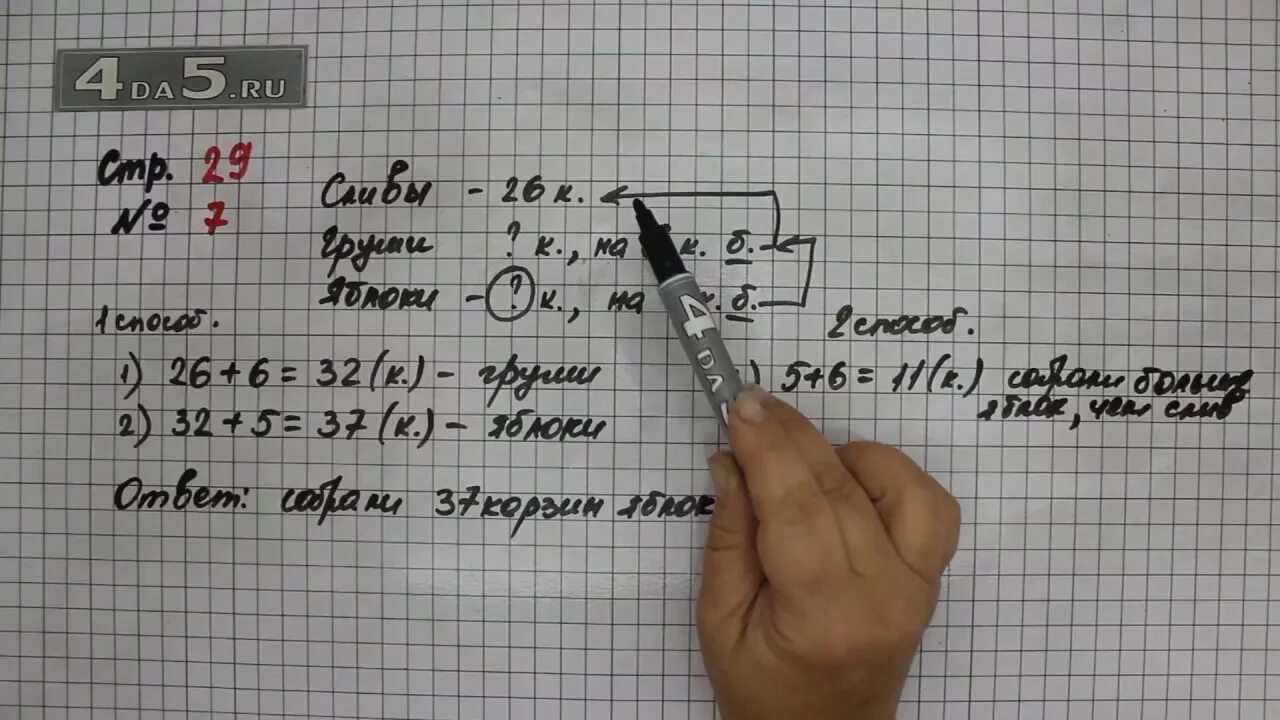 4DA5.RU
Стр. 29
№ 7
Сливы - 26 к.
Груши ? к., на к. б.
Яблоки - ? к., на к. б.
1 способ.
1) 26 + 6 = 32 (к.) - груши
2) 32 + 5 = 37 (к.) - яблоки
Ответ: собрали 37 корзин яблок
2 способ.
) 5+6 = 11 (к.) собрали больше
яблок, чем слив
4DA5